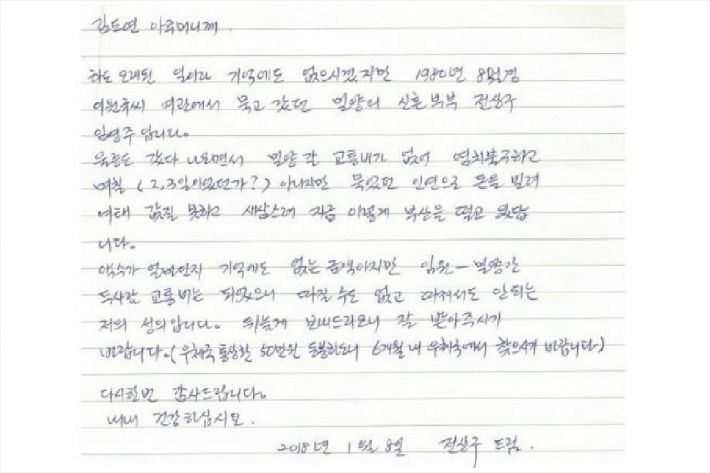 김도연 아주머니께.
하도 오래된 일이라 기억에도 없으시겠지만 1980년 8월경
여관에서 묵고 갔던 밀양의 신혼부부 전상구
임영주입니다.
울릉도 갔다 나오면서 밀양 갈 교통비가 없어 염치불구하고
며칠 (2,3일이었던가?) 아니지만 묵었던 인연으로 돈을 빌려
여태 갚질 못하고 새삼스레 지금 이렇게 부산을 떨고 있답
니다.
액수가 얼마인지 기억에도 없는 금액이지만 임원-밀양간
두사람 교통비는 되었으니 따질 수도 없고 따져서도 안되는
저의 성의입니다. 뒤늦게 보내드리오니 잘 받아주시기
바랍니다. (우체국 통상환 50만원 동봉하오니 6개월내 우체국에서 찾으시기 바랍니다)
다시한번 감사드립니다.
내내 건강하십시오.
2018년 1월 8일 전상구 드림.